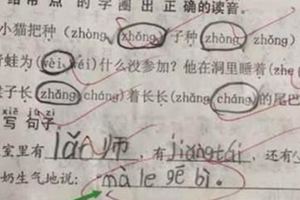 给带点的字圈出正确的读音。
小猫把种(zhòng zhǒng)子种(zhòng zhǒng)
青蛙为(wèi wéi)什么没参加？他在洞里睡着(zhe
子长(zhǎng cháng)着长长(zhǎng cháng)的尾巴
xiě jù zi
写句子
室里有lǎo师，有jiangtái，还有
奶生气地说：mà le gē bì。